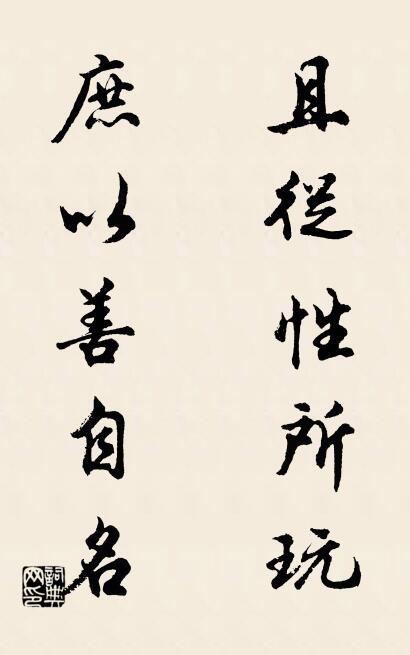 且從性所玩
庶以善自名
詞典网印